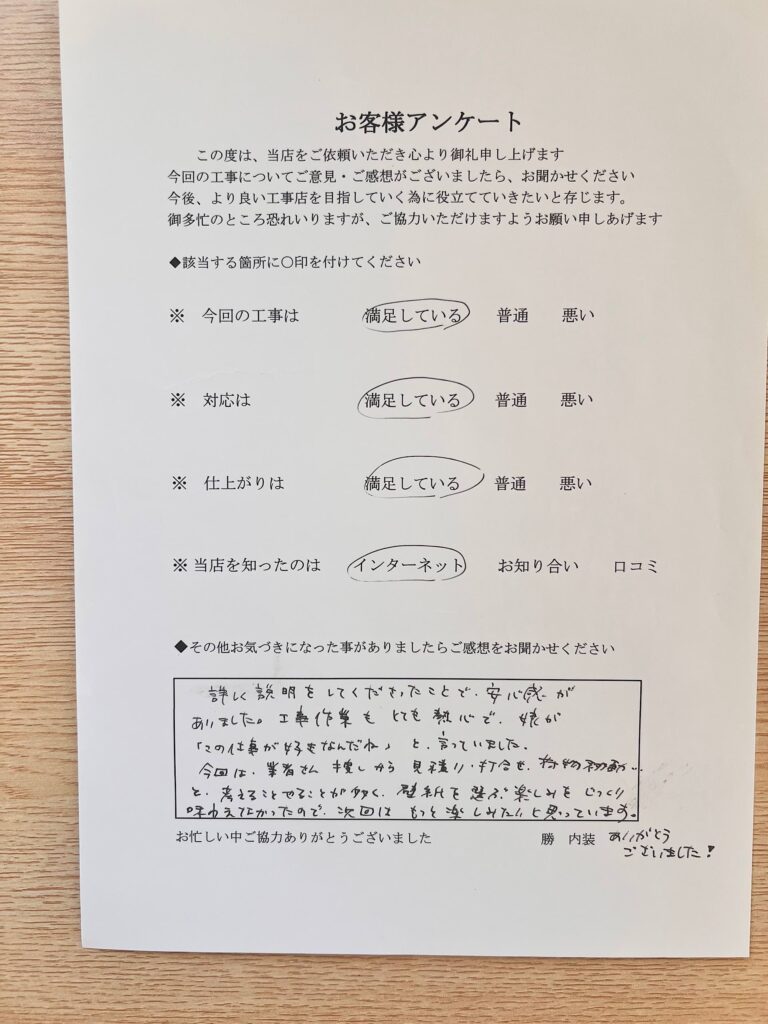 お客様アンケート
この度は、当店をご依頼いただき心より御礼申し上げます
今回の工事についてご意見・ご感想がございましたら、お聞かせください
今後、より良い工事店を目指していく為に役立てていきたいと存じます。
御多忙のところ恐れいりますが、ご協力いただけますようお願い申しあげます
◆該当する箇所に〇印を付けてください
※ 今回の工事は 満足している 普通 悪い
※ 対応は 満足している 普通 悪い
※ 仕上がりは 満足している 普通 悪い
※ 当店を知ったのは インターネット お知り合い 口コミ
◆その他お気づきになった事がありましたらご感想をお聞かせください
詳しく説明をしてくださったことで、安心感が
ありました。工事作業もとても熱心で、娘が
「この仕事が好きなんだね」と、言っていました。
今回は、業者さん探しから見積り・打合せ、荷物移動…
と、考えることやることが多く、壁紙を選ぶ楽しみをじっくり
味わえなかったので、次回はもっと楽しみたいと思っています。
お忙しい中ご協力ありがとうございました 勝 内装 ありがとう
ございました!